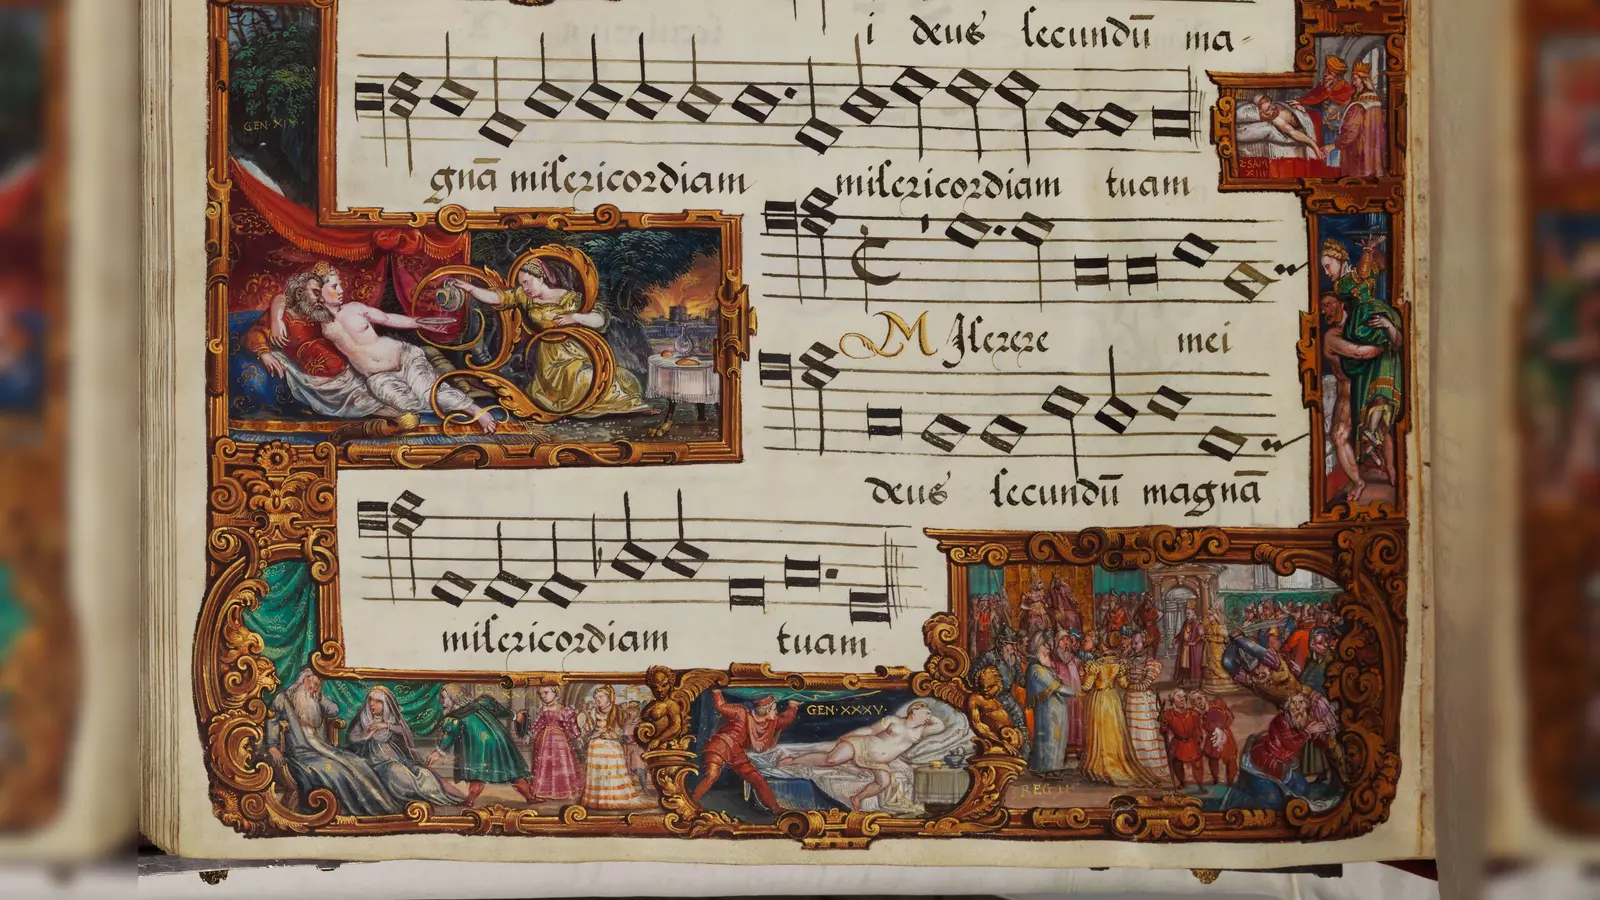 i deus secundū ma-
GEN·XIX·
gnā misericordiam misericordiam tuam
2·SAM XIII
Miserere mei
deus secundū magnā
misericordiam tuam
GEN·XXXV·